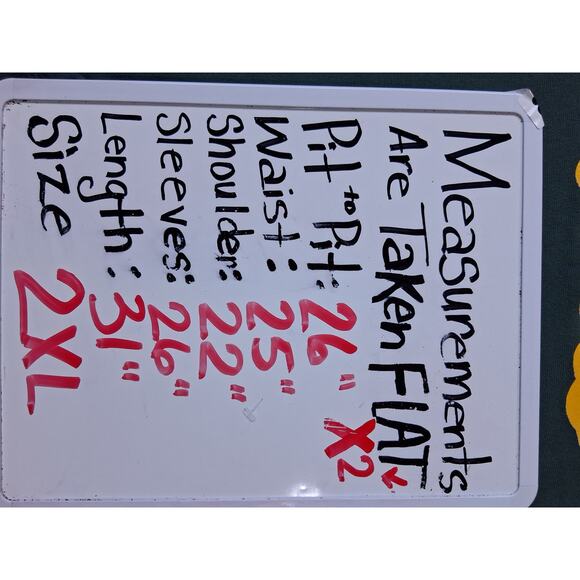 Measurements
Are Taken FLAT
Pit to Pit: 26" X2
Waist: 25"
Shoulder: 22"
Sleeves: 26"
Length: 31"
Size 2XL